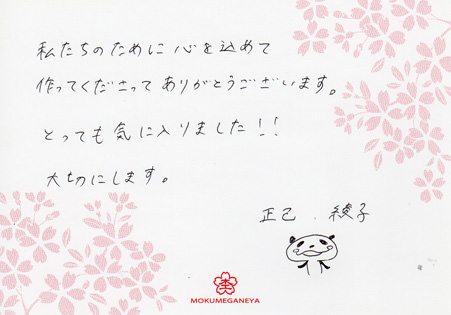 私たちのために心を込めて
作ってくださってありがとうございます。
とっても気に入りました!!
大切にします。
正己 . 綾子
MOKUMEGANEYA